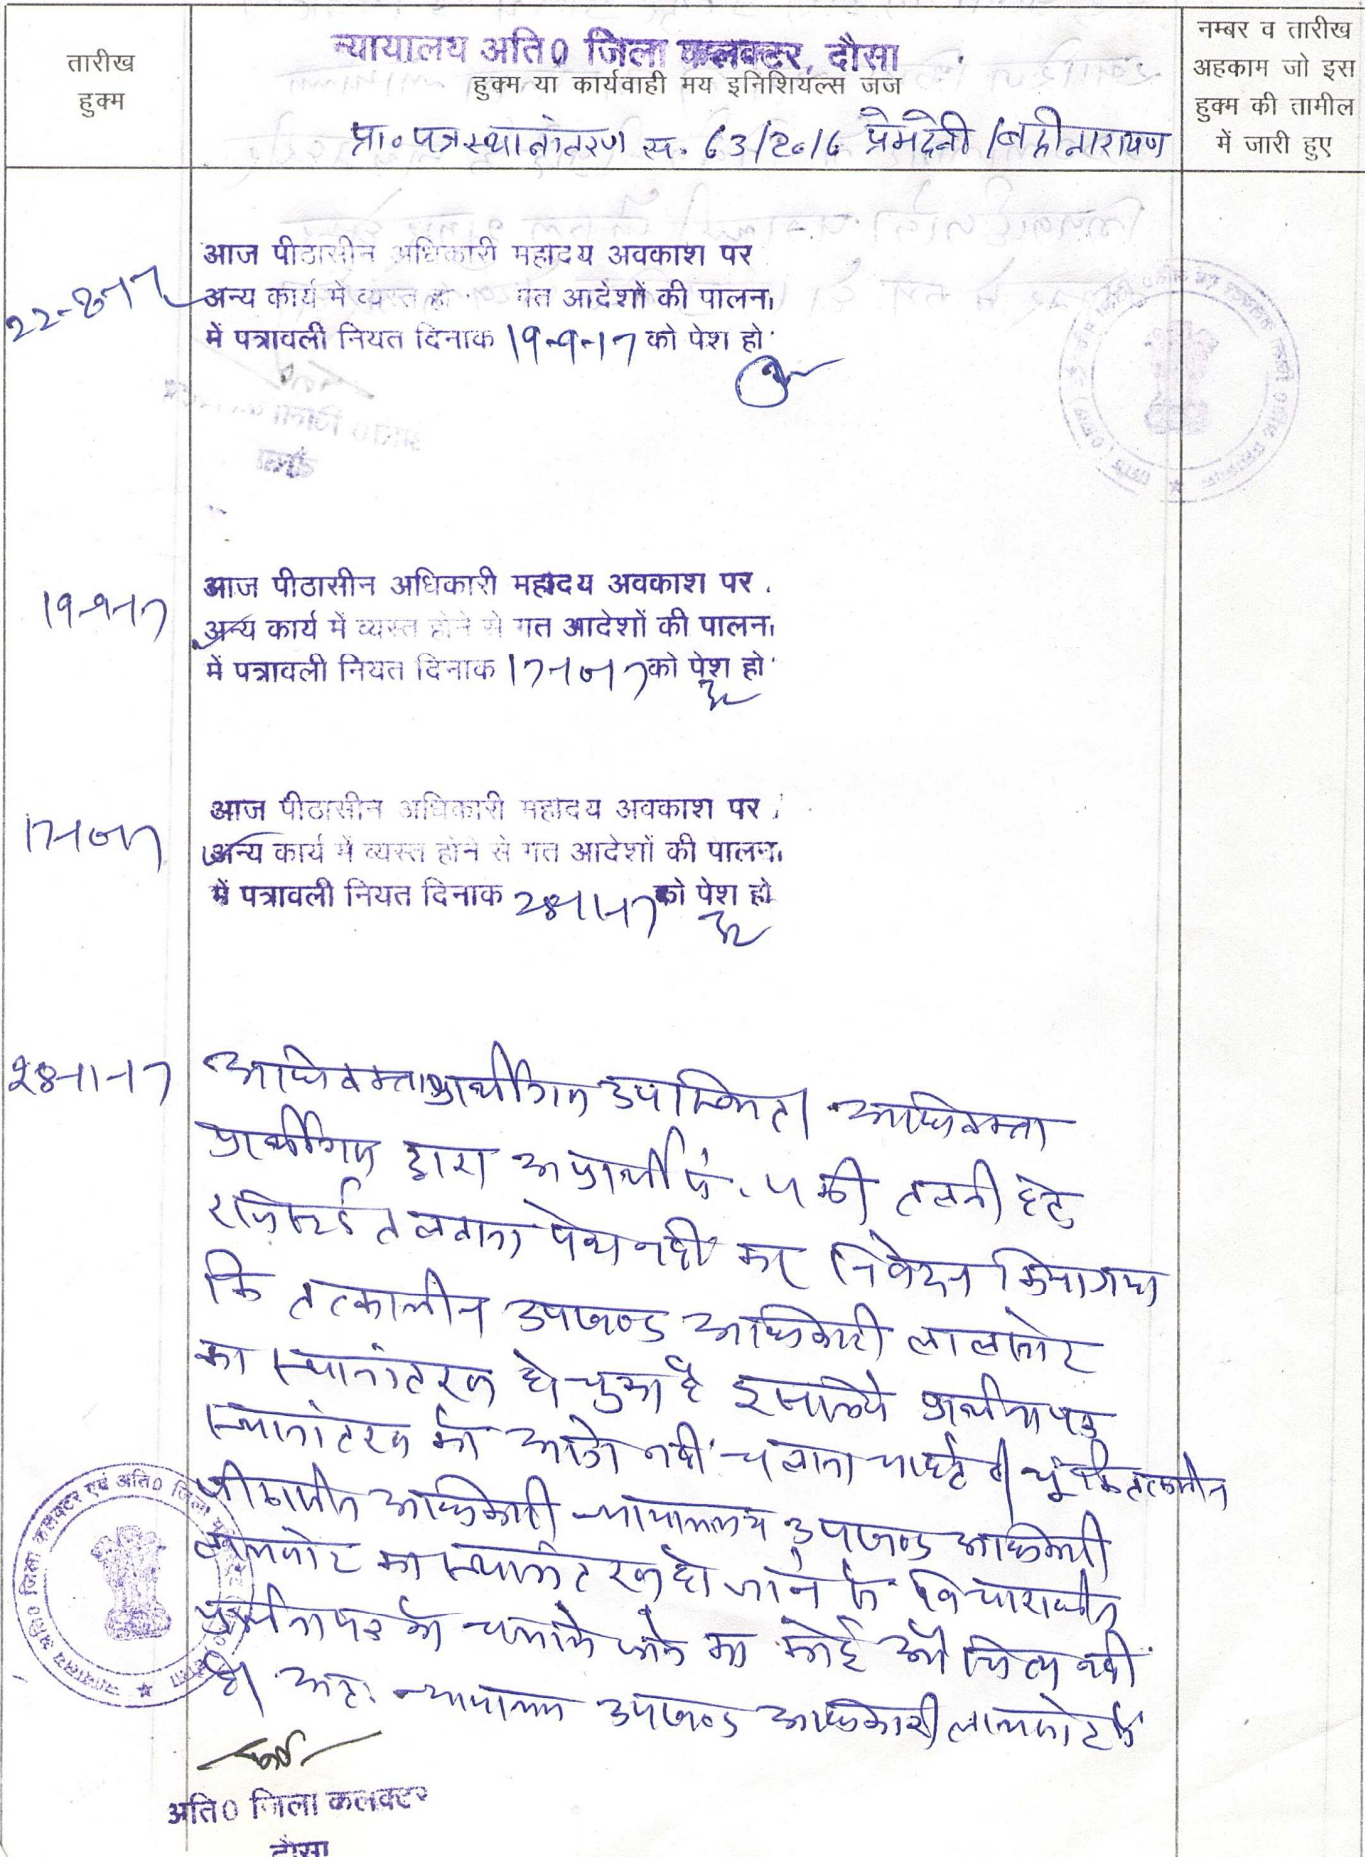 तारीख
हुक्म
न्यायालय अति0 जिला कलक्टर, दौसा
हुक्म या कार्यवाही मय इनिशियल्स जज
प्रा० पत्र स्थानांतरण स. 63/2016 प्रेमदेवी / बद्रीनारायण
नम्बर व तारीख
अहकाम जो इस
हुक्म की तामील
में जारी हुए
22-8-17
आज पीठासीन अधिकारी महादय अवकाश पर
अन्य कार्य में व्यस्त हो गत आदेशों की पालना
में पत्रावली नियत दिनाक 19-9-17 को पेश हो
19-9-17
आज पीठासीन अधिकारी महादय अवकाश पर
अन्य कार्य में व्यस्त होने से गत आदेशों की पालना
में पत्रावली नियत दिनाक 17-10-17 को पेश हो
17-10-17
आज पीठासीन अधिकारी महादय अवकाश पर
अन्य कार्य में व्यस्त होने से गत आदेशों की पालना
में पत्रावली नियत दिनाक 28-11-17 को पेश हो
28-11-17
अधिवक्ता प्रार्थीगण उपस्थित। अधिवक्ता
प्रार्थीगण द्वारा अप्रार्थी सं. 4 की तलबी हेतु
रजिस्टर्ड तलवाना पेश नहीं कर निवेदन किया गया
कि तत्कालीन उपखण्ड अधिकारी लालसोट
का स्थानांतरण हो चुका है इसलिये प्रार्थनापत्र
स्थानांतरण को आगे नहीं चलाना चाहते है। चूंकि तत्कालीन
पीठासीन अधिकारी न्यायालय उपखण्ड अधिकारी
लालसोट का स्थानांतरण हो जाने से विचाराधीन
प्रार्थनापत्र को चलाये जाने का कोई औचित्य नहीं
है। अतः न्यायालय उपखण्ड अधिकारी लालसोट के
अति0 जिला कलक्टर
दौसा